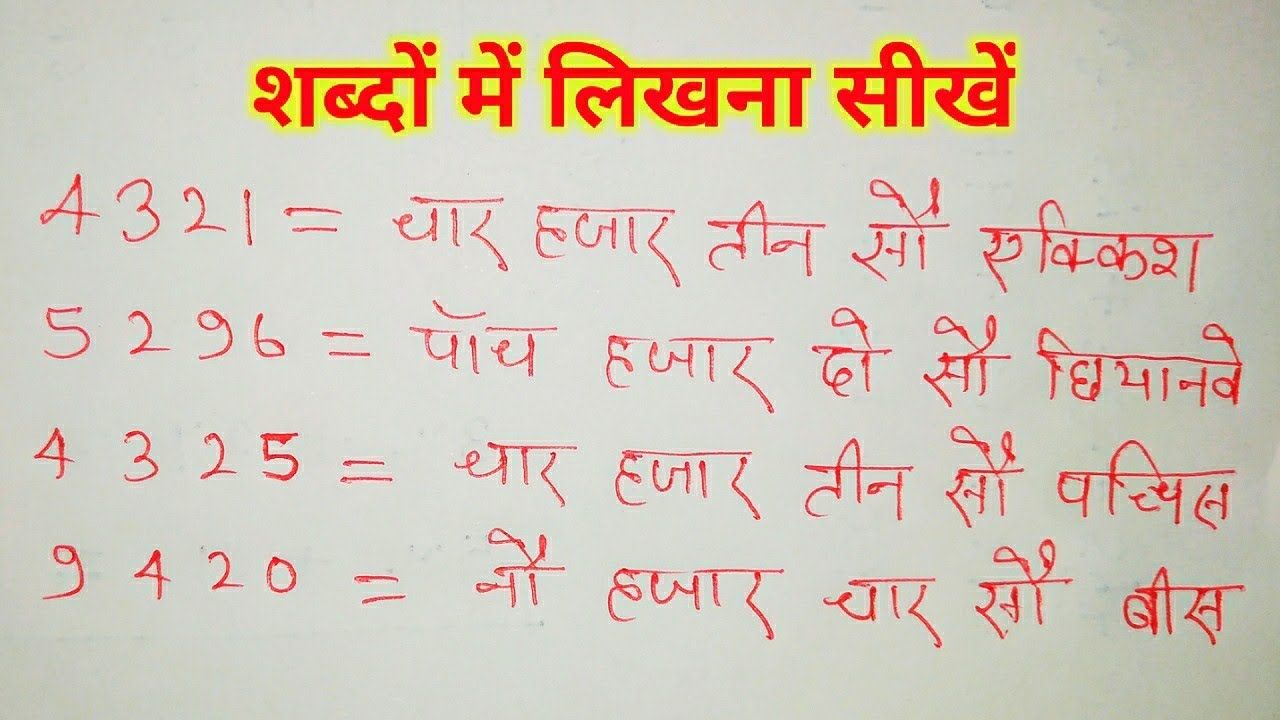 शब्दों में लिखना सीखें
4321 = चार हजार तीन सौ एक्किश
5296 = पाँच हजार दो सौ छियानवे
4325 = चार हजार तीन सौ पच्चिस
9420 = नौ हजार चार सौ बीस